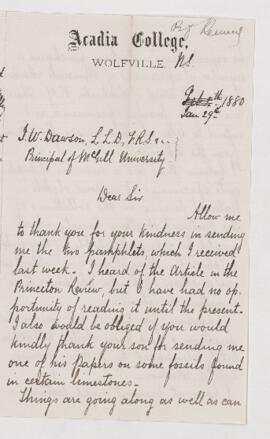 Acadia College,
WOLFVILLE, N.S.
1880
Jan. 29th
J. W. Dawson, L.L.D., F.R.S.
Principal of McGill University
Dear Sir
Allow me
to thank you for your kindness in sending
me the two pamphlets, which I received
last week. I heard of the Article in the
Princeton Review, but I have had no op-
portunity of reading it until the present.
I also would be obliged if you would
kindly thank your son for sending me
one of his Papers on some fossils found
in certain limestones.
Things are going along as well as can